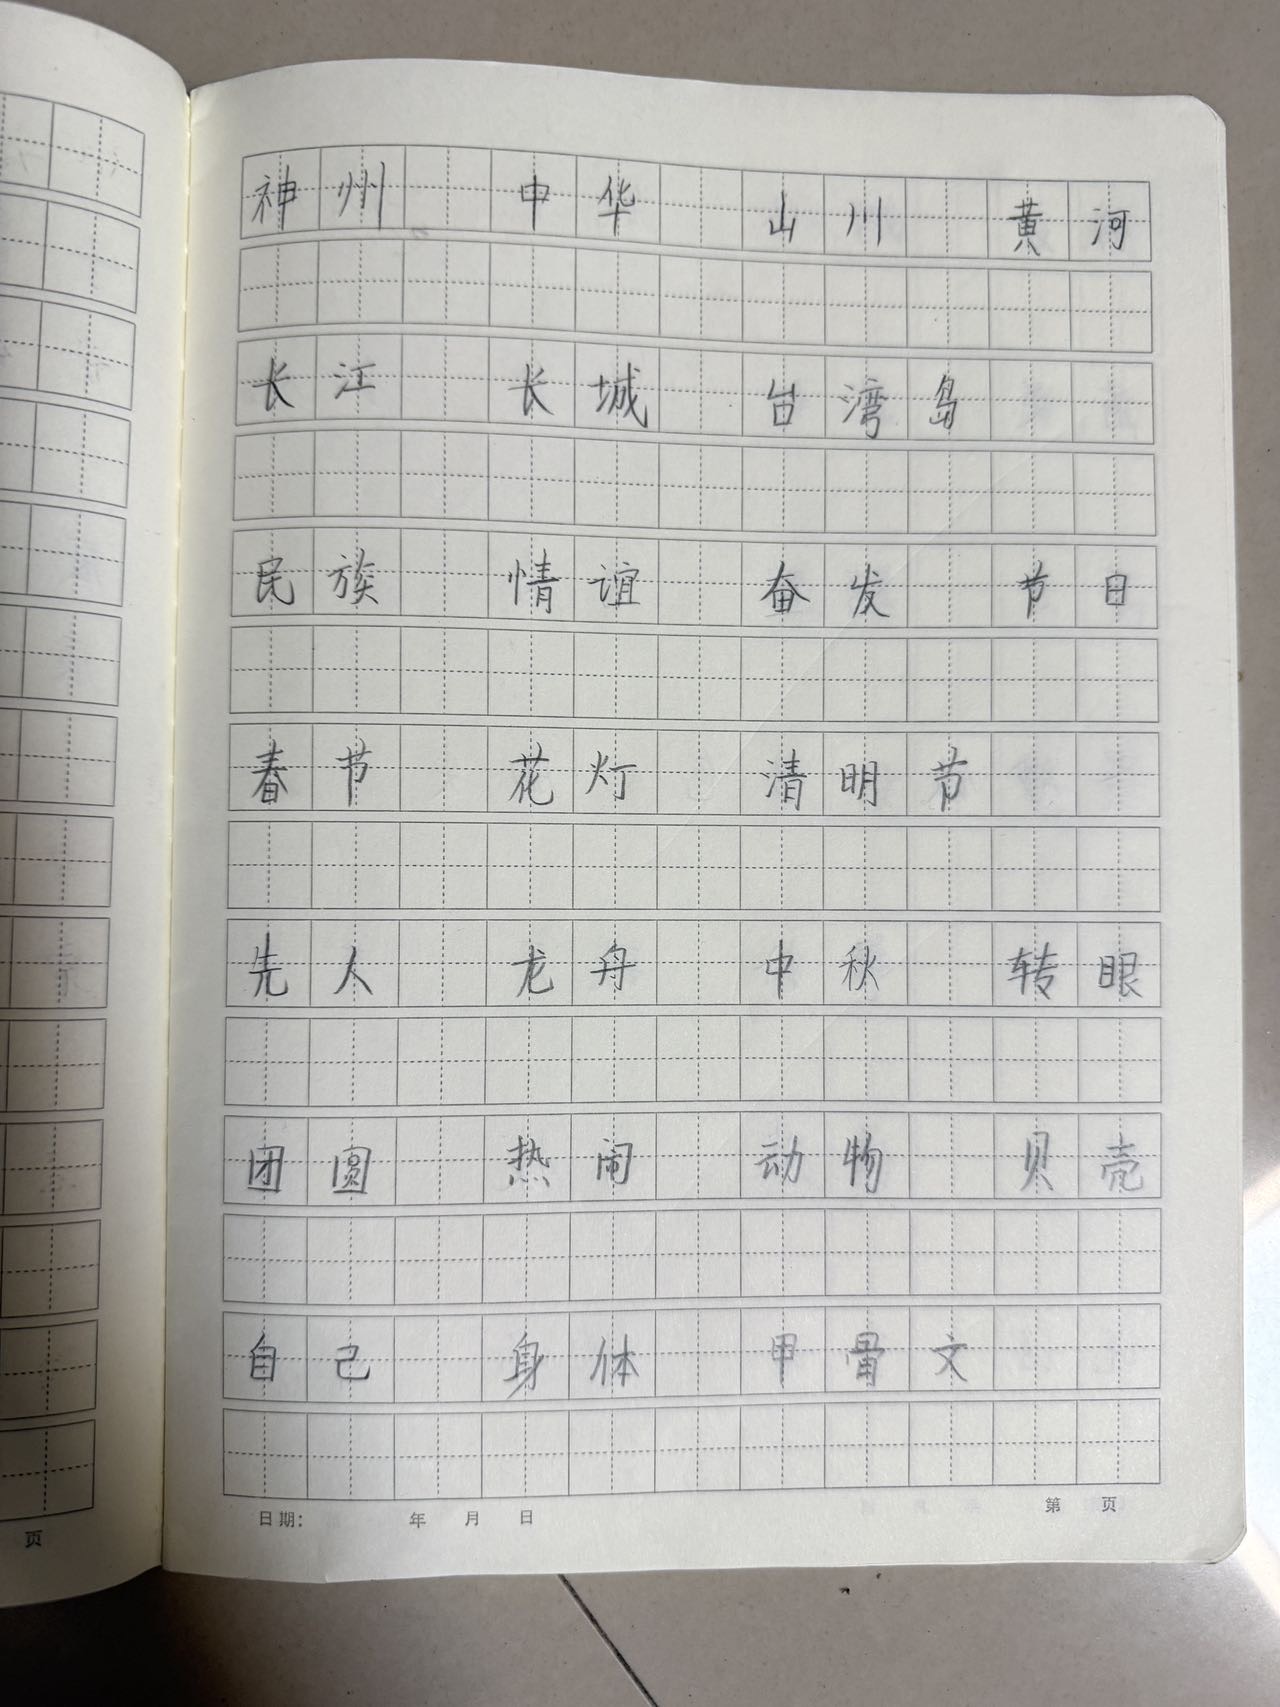 神州 中华 山川 黄河
长江 长城 台湾岛
民族 情谊 奋发 节日
春节 花灯 清明节
先人 龙舟 中秋 转眼
团圆 热闹 动物 贝壳
自己 身体 甲骨文
日期： 年 月 日 第 页
页